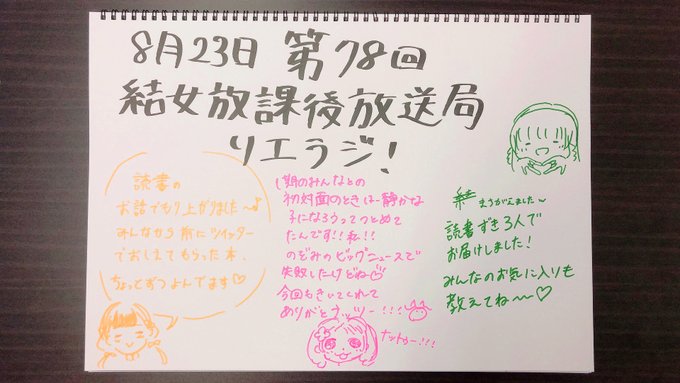 8月23日 第78回
結女放課後放送局
リエラジ!
読書の
お話でもり上がりました〜♪
みんなから前にツイッター
でおしえてもらった本、
ちょっとずつよんでます♡
1期のみんなとの
初対面のときは静かな
子になろうってつとめて
たんです!!私!!
のぞみのビッグニュースで
失敗したけどね♡
今回もきいてくれて
ありがとナッツー!!!
ナットゥー!!!
まちがえました〜
読書ずき3人で
お届けしました!
みんなのお気に入りも
教えてね〜〜♡